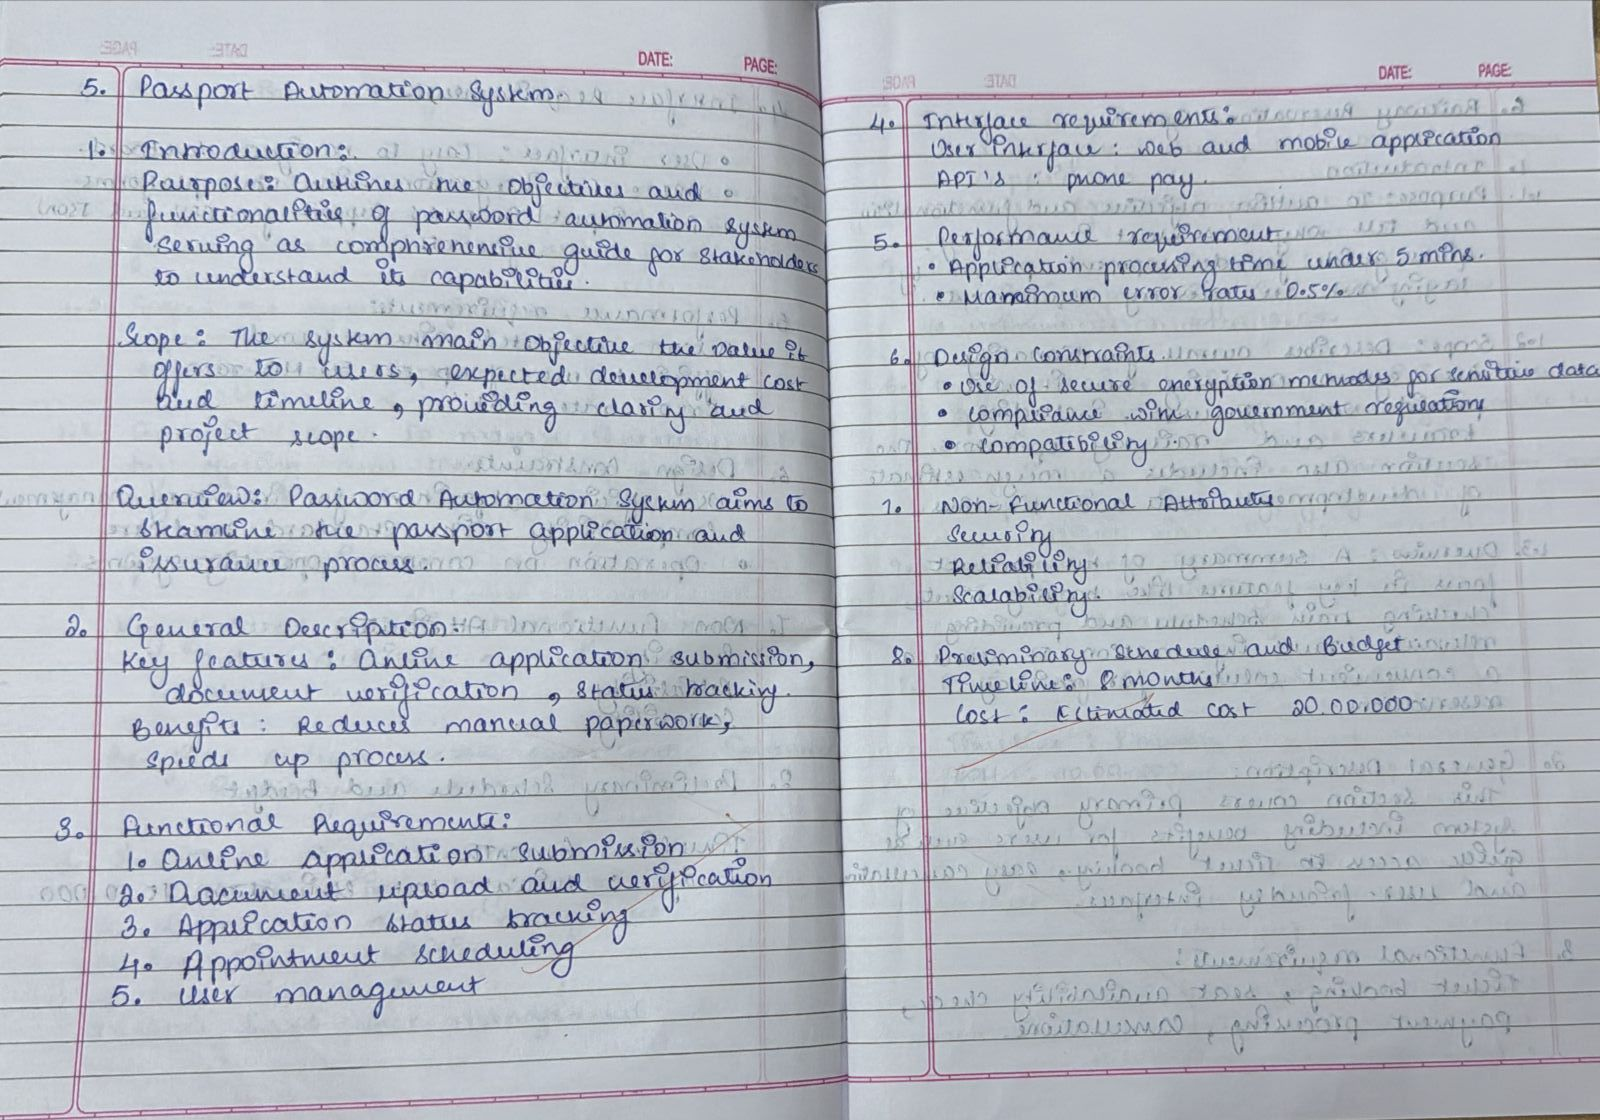 DATE: PAGE:
5. Passport Automation System
1. Introduction:
Purpose: Outlines the objectives and
functionalities of password automation system
serving as comphrenensive guide for stakeholders
to understand its capabilities.
Scope: The system main objective the value it
offers to users, expected development cost
and timeline, providing clarity and
project scope.
Overview: Password Automation System aims to
streamline the passport application and
issurance process.
2. General Description:
Key features: Online application submission,
document verification, status tracking.
Benefits: Reduces manual paperwork,
speeds up process.
3. Functional Requirements:
1. Online application submission
2. Document upload and verification
3. Application status tracking
4. Appointment scheduling
5. User management
DATE: PAGE:
4. Interface requirements:
User interface: Web and mobile application
API's : phone pay.
5. Performance requirement
• Application processing time under 5 mins.
• Maximum error rates 0.5%
6. Design constraints.
• Use of secure encryption methodes for sensitive data
• compliance with government regulations
• compatibility
7. Non-Functional Attributes
Security
Reliability
Scalability
8. Preliminary Schedule and Budget
Timeline: 8 months
Cost: Estimated cost 20,00,000